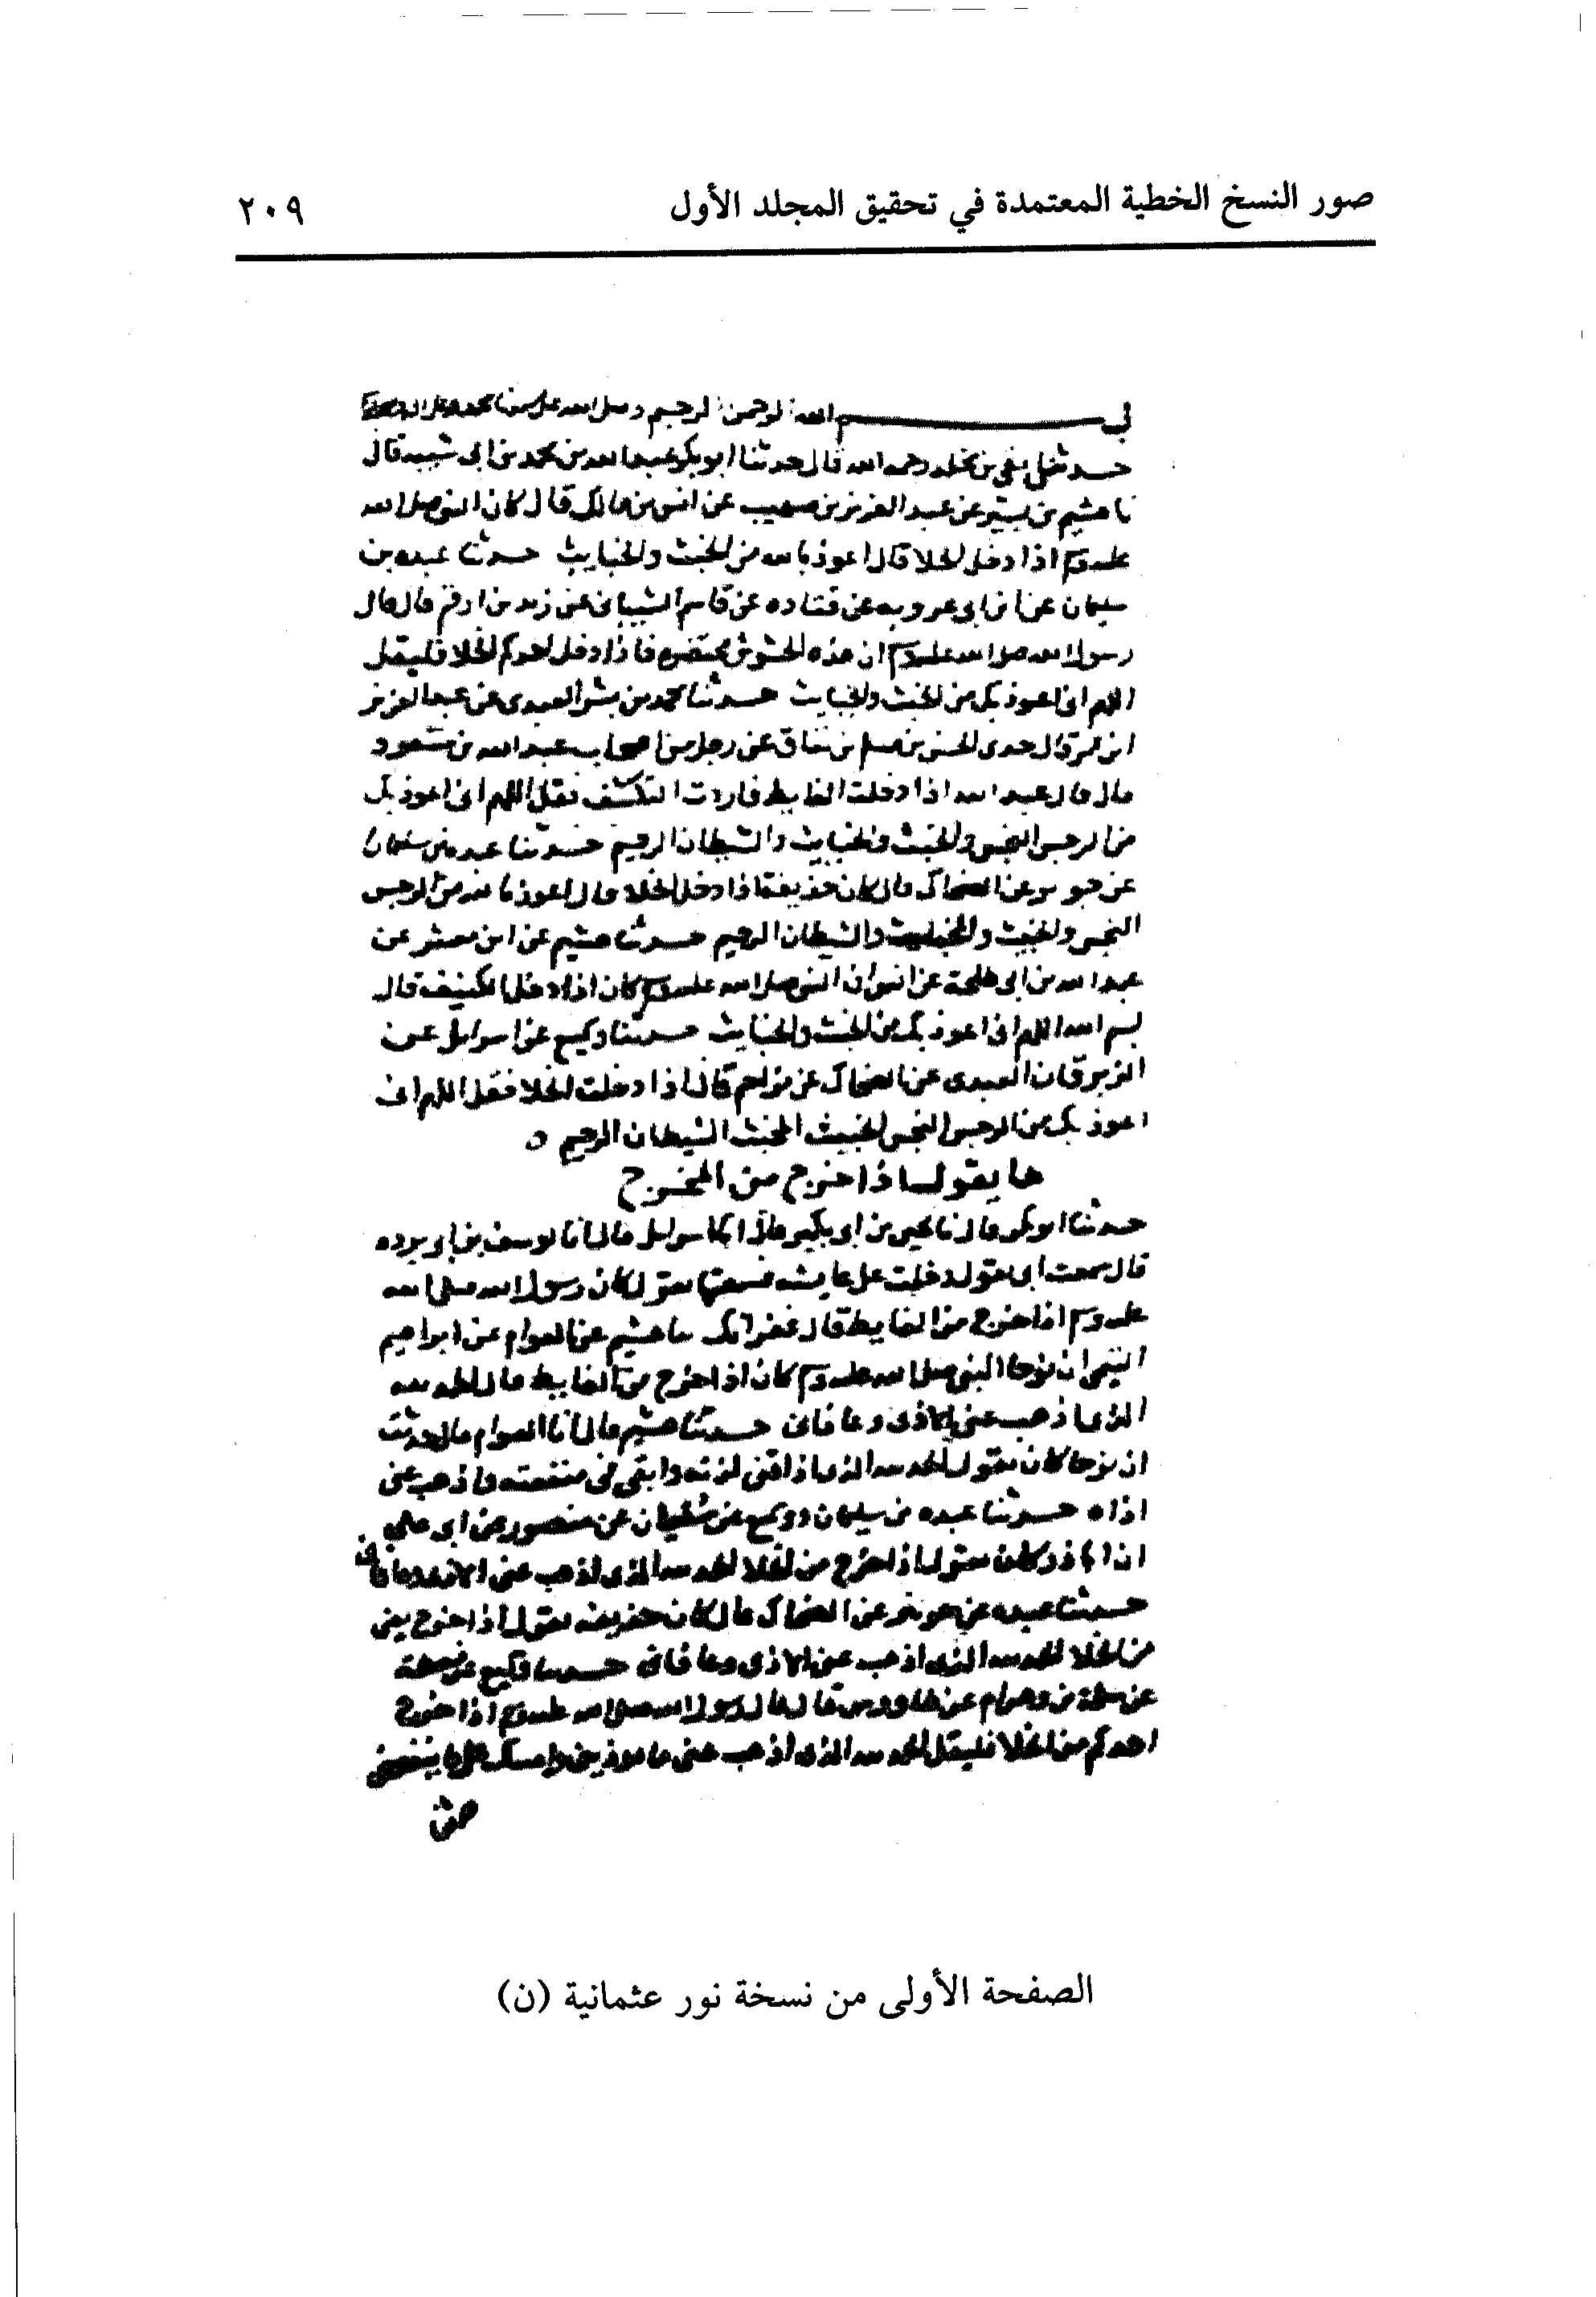 صور النسخ الخطية المعتمدة في تحقيق المجلد الأول
٢٠٩
بسم الله الرحمن الرحيم وصلى الله على سيدنا محمد وعلى
حدثنا بقي بن مخلد رحمه الله قال حدثنا ابو بكر عبد الله بن محمد بن ابي شيبه قال
نا هشيم بن بشير عن عبد العزيز بن صهيب عن انس بن مالك قال كان النبي صلى الله
عليه وسلم اذا دخل الخلا قال اعوذ بالله من الخبث والخبايث حدثنا عبده بن
سليمان عن ابن ابي عروبه عن قتاده عن قاسم الشيباني عن زيد بن ارقم قال قال
رسول الله صلى الله عليه وسلم ان هذه الحشوش محتضره فاذا دخل احدكم الخلا فليقل
اللهم اني اعوذ بك من الخبث والخبايث حدثنا محمد بن بشر العبدي عن عبد العزيز
ابن عمر قال حدثني الحسن بن مسلم بن يناق عن رجل من اصحاب عبد الله بن مسعود
قال قال عبد الله اذا دخلت الغايط فاردت التكشف فقل اللهم اني اعوذ بك
من الرجس النجس والخبث والخبايث والشيطان الرجيم حدثنا عبده بن سليمان
عن جويبر عن الضحاك قال كان حذيفة اذا دخل الخلا قال اعوذ بالله من الرجس
النجس والخبيث والخبايث والشيطان الرجيم حدثنا هشيم عن ابي معشر عن
عبد الله بن ابي طلحة عن انس ان النبي صلى الله عليه وسلم كان اذا دخل الكنيف قال
بسم الله اللهم اني اعوذ بك من الخبث والخبايث حدثنا وكيع عن اسرايل عن
الزبرقان العبدي عن الضحاك عن مزاحم قال اذا دخلت الخلا فقل اللهم اني
اعوذ بك من الرجس النجس الخبيث المخبث الشيطان الرجيم ه
ما يقول اذا خرج من المخرج
حدثنا ابو بكر قال نا يحيى بن ابي بكير قال انا اسرايل قال انا يوسف بن ابي برده
قال سمعت ابي يقول دخلت على عايشه فسمعتها تقول كان رسول الله صلى الله
عليه وسلم اذا خرج من الغايط قال غفرانك نا هشيم عن العوام عن ابراهيم
التيمي ان نوحا النبي صلى الله عليه وسلم كان اذا خرج من الغايط قال الحمد لله
الذي اذهب عني الاذى وعافاني حدثنا هشيم قال انا العوام قال حدثت
ان نوحا كان يقول الحمد لله الذي اذاقني لذته وابقى في منفعته واذهب عني
اذاه حدثنا عبده بن سليمان ووكيع عن سفيان عن منصور عن ابي علي
ان ابا ذر كان يقول اذا خرج من الخلا الحمد لله الذي اذهب عني الاذى وعافاني
حدثنا عبده عن جويبر عن الضحاك قال كان حذيفه يقول اذا خرج يعني
من الخلا الحمد لله الذي اذهب عني الاذى وعافاني حدثنا وكيع عن زمعة
عن سلمة بن وهرام عن طاووس قال قال رسول الله صلى الله عليه وسلم اذا خرج
احدكم من الخلا فليقل الحمد لله الذي اذهب عني ما يوذيني وامسك علي ما ينفعني
الصفحة الأولى من نسخة نور عثمانية (ن)